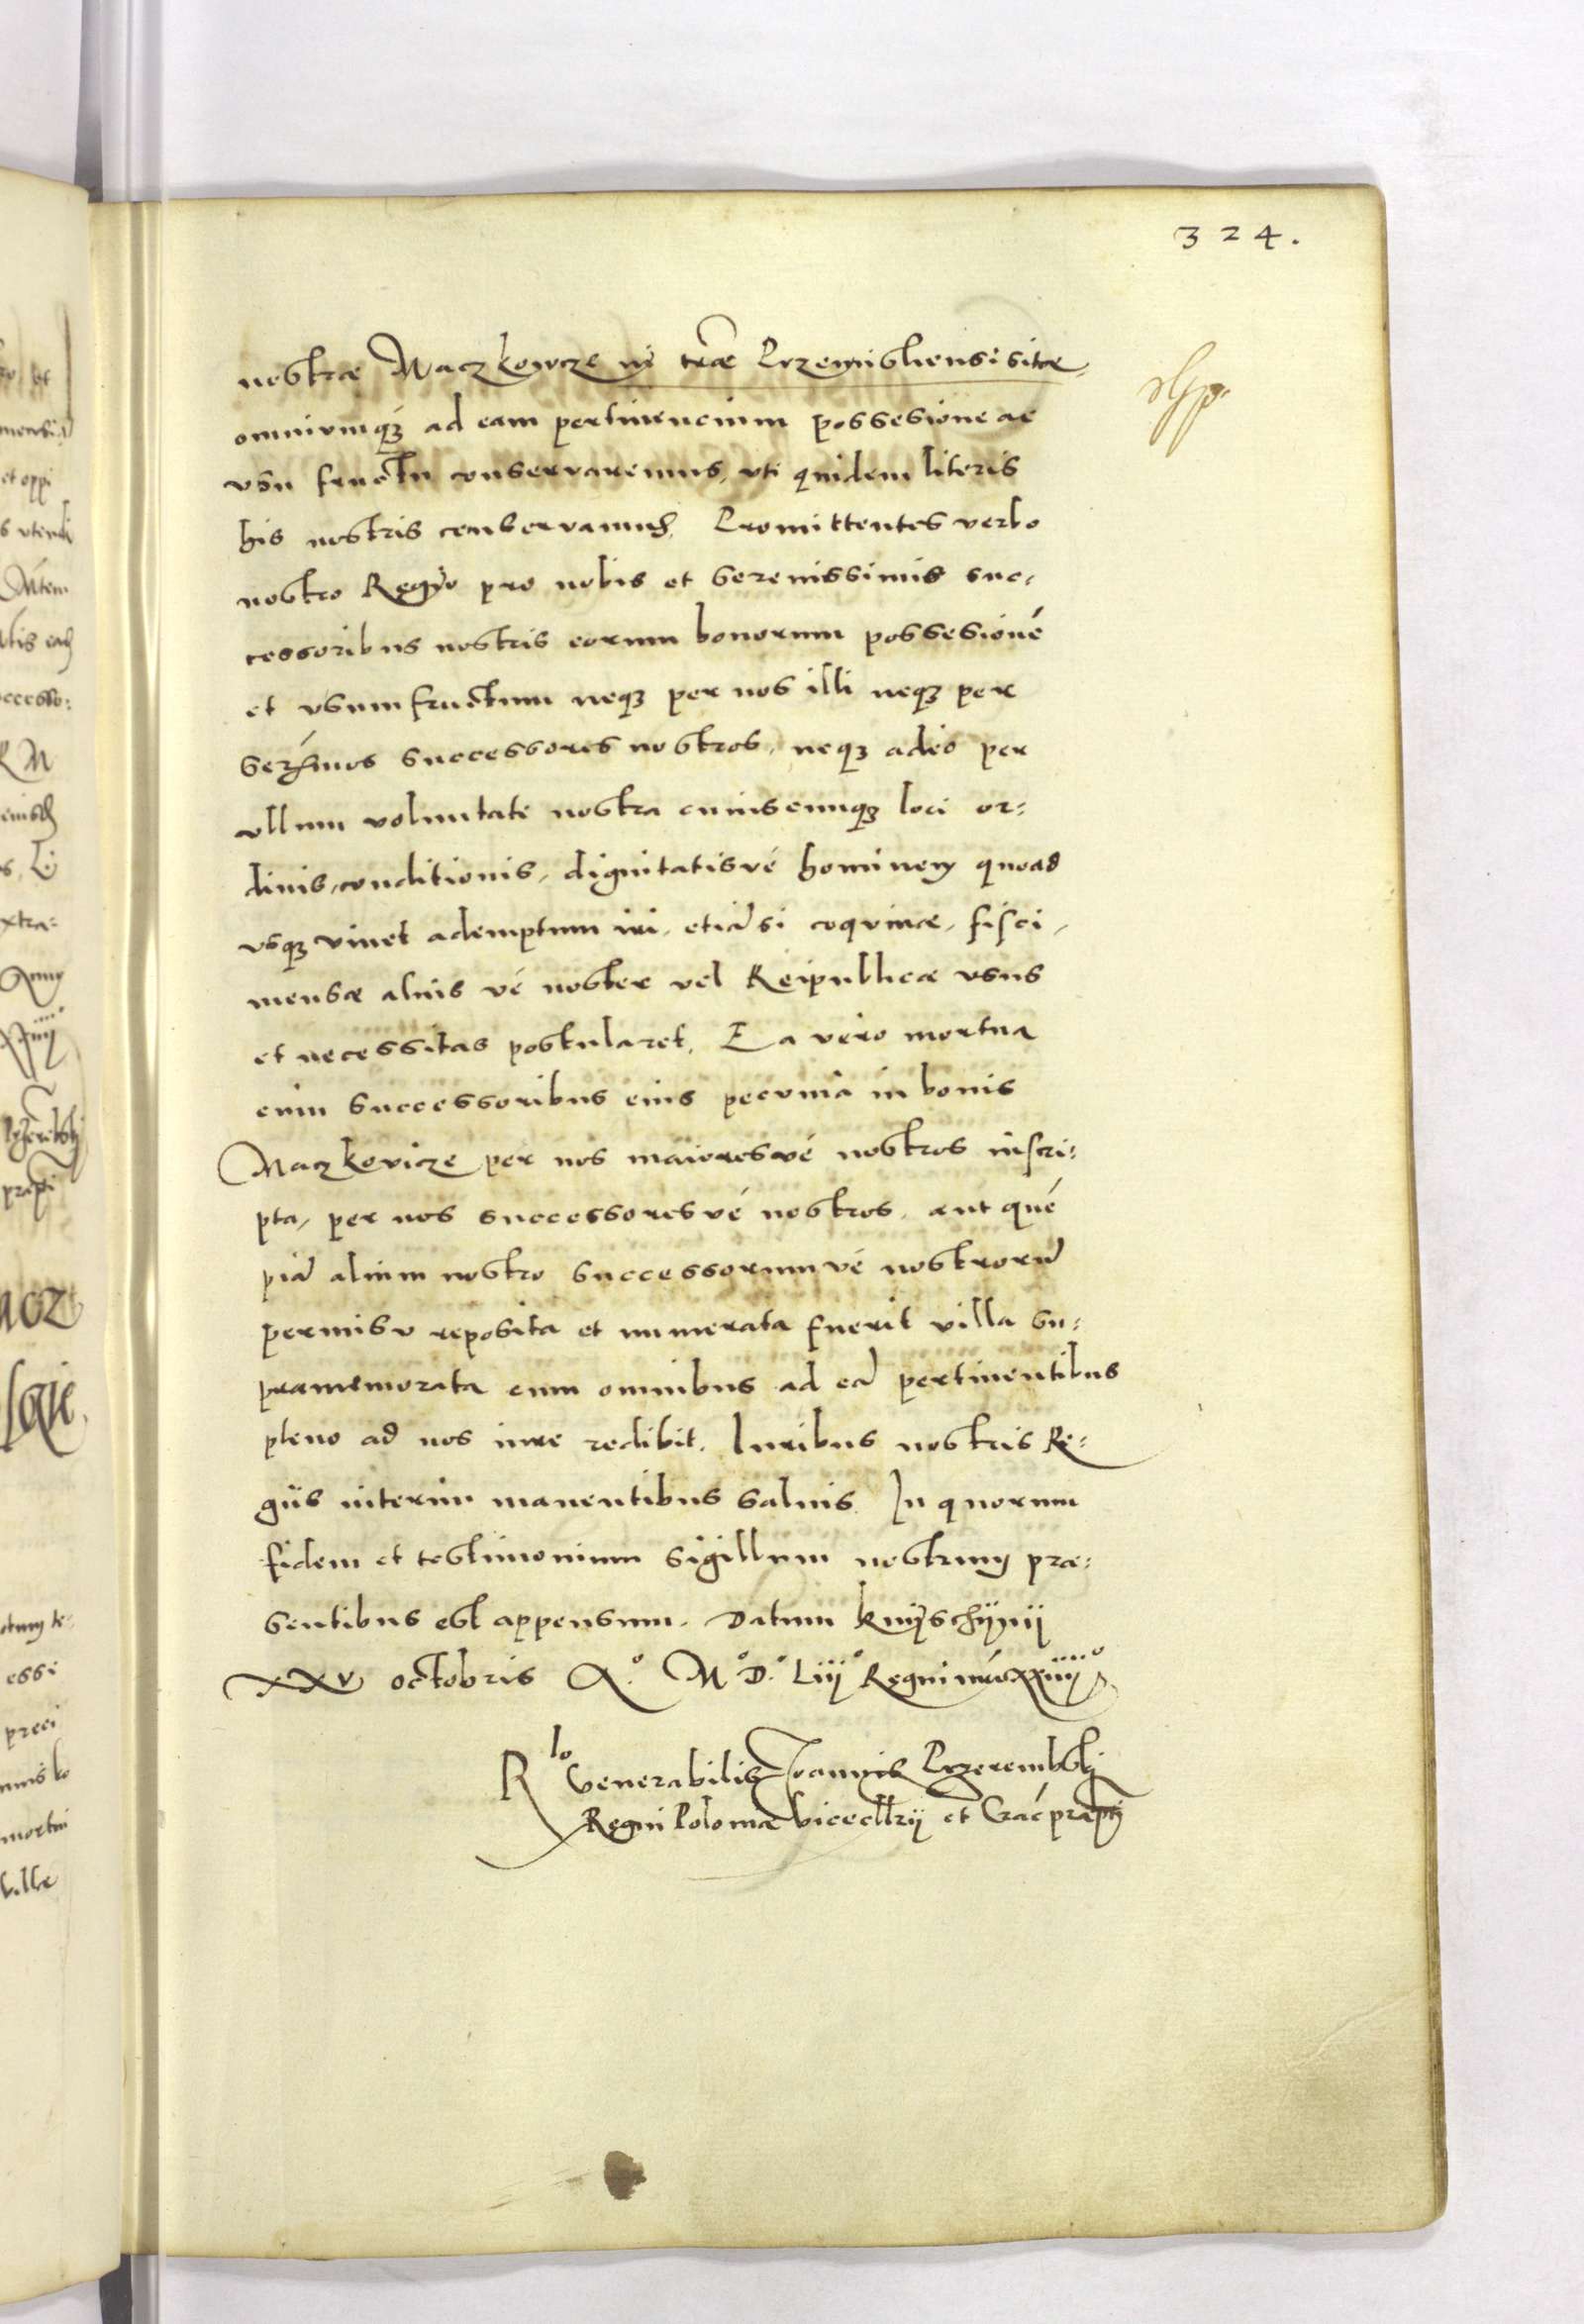 324.
nostræ Maczkowcze in trae Przemisliensi sitæ
omniumq́ʒ ad eam pertinencium possesione ac
vsu fructu conservaremus, vti quidem literis
his nostris conservamus. Promittentes verbo
nostro Regio pro nobis et serenissimis suc-
cessoribus nostris eorum bonorum possesioné
et vsumfructum neqʒ per nos illi neqʒ per
serẽmos successores nostros, neqʒ adeo per
ullum voluntate nostra cuiuscunqʒ loci or-
dinis, conditionis, dignitatisvé hominem quoad
vsqʒ vivet ademptum iri, etiã si coqvinæ, fisci,
mensæ alius vé noster vel Reipublicæ vsus
et necessitas postularet. Ea vero mortua
cum successoribus eius pecvnia in bonis
Maczkovicze per nos maioresvé nostros inscri-
pta, per nos successoresvé nostros, aut qué
piã alium nostro successorumvé nostrorũ
permisv reposita et numerata fuerit villa su-
pramemorata cum omnibus ad eã pertinentibus
pleno ad nos iure redibit. Iuribus nostris Re-
giis interim manentibus salvis. In quorum
fidem et testimonium sigillum nostrum præ-
sentibus est appensum. Datum knÿschÿnij
xxv octobris A.o Mo D.o Liijo Regni nrõ xxiiijo
Rlo Venerabilis Joannis Przerembskj
Regni Poloniæ vicecllrij et Crać præptj